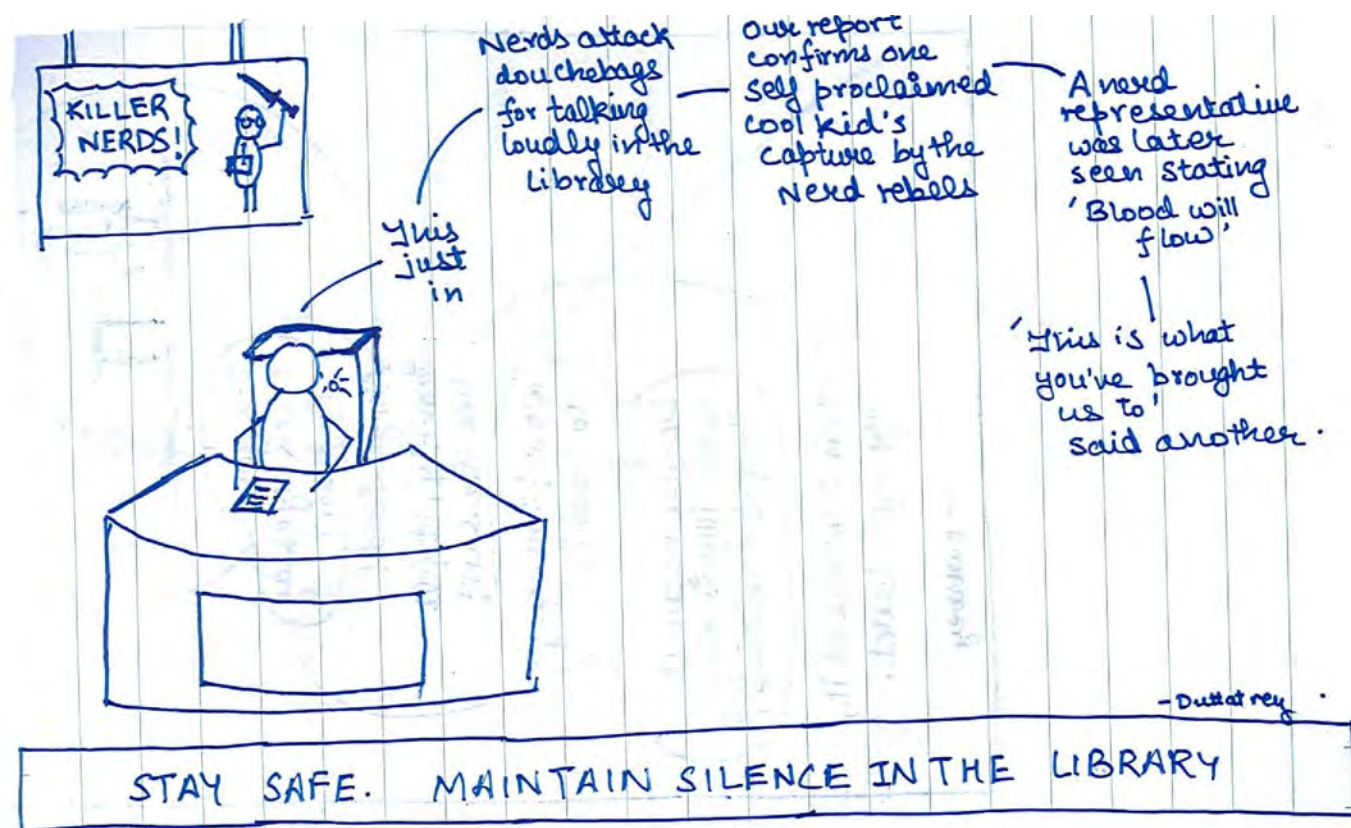 KILLER
NERDS!
This
just
in
Nerds attack
douchebags
for talking
loudly in the
Library
Our report
confirms one
self proclaimed
cool kid's
capture by the
Nerd rebels
A nerd
representative
was later
seen stating
'Blood will
flow'
'This is what
you've brought
us to'
said another.
- Duttatrey
STAY SAFE. MAINTAIN SILENCE IN THE LIBRARY